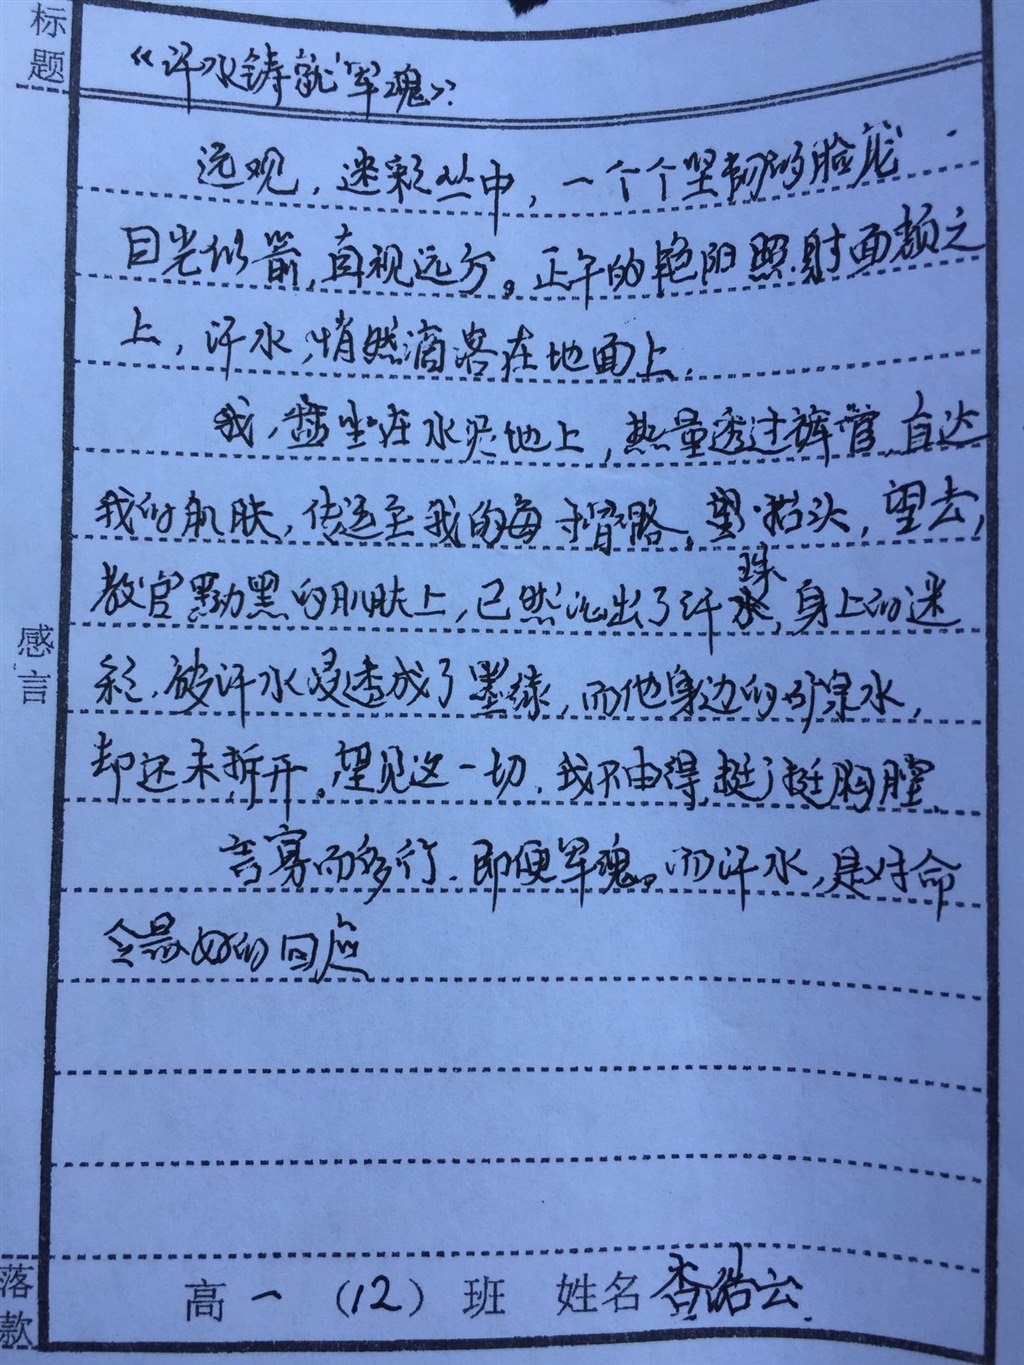 标题
《汗水铸就军魂》
远观，迷彩丛中，一个个坚韧的脸庞
目光似箭，直视远方。正午的艳阳照射面颊之
上，汗水，悄然滴落在地面上。
我，盘坐在水泥地上，热量透过裤管，直达
我的肌肤，传递至我的每寸骨骼。抬头，望去，
教官黝黑的肌肤上，已然沁出了汗珠，身上的迷
彩，被汗水浸透成了墨绿，而他身边的矿泉水，
却还未拆开。望见这一切，我不由得挺了挺胸膛。
言寡而多行，即便军魂。而汗水，是对命
令最好的回应
感言
落款
高一（12）班 姓名 浩云